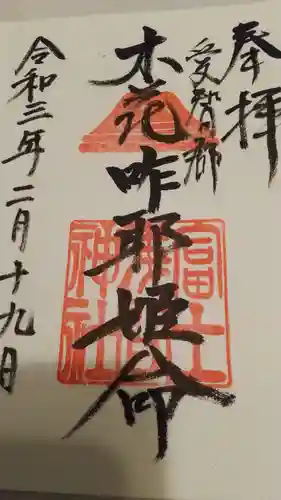 奉拝
愛智郡
木花咋耶姫命
富士浅間神社
令和三年二月十九日